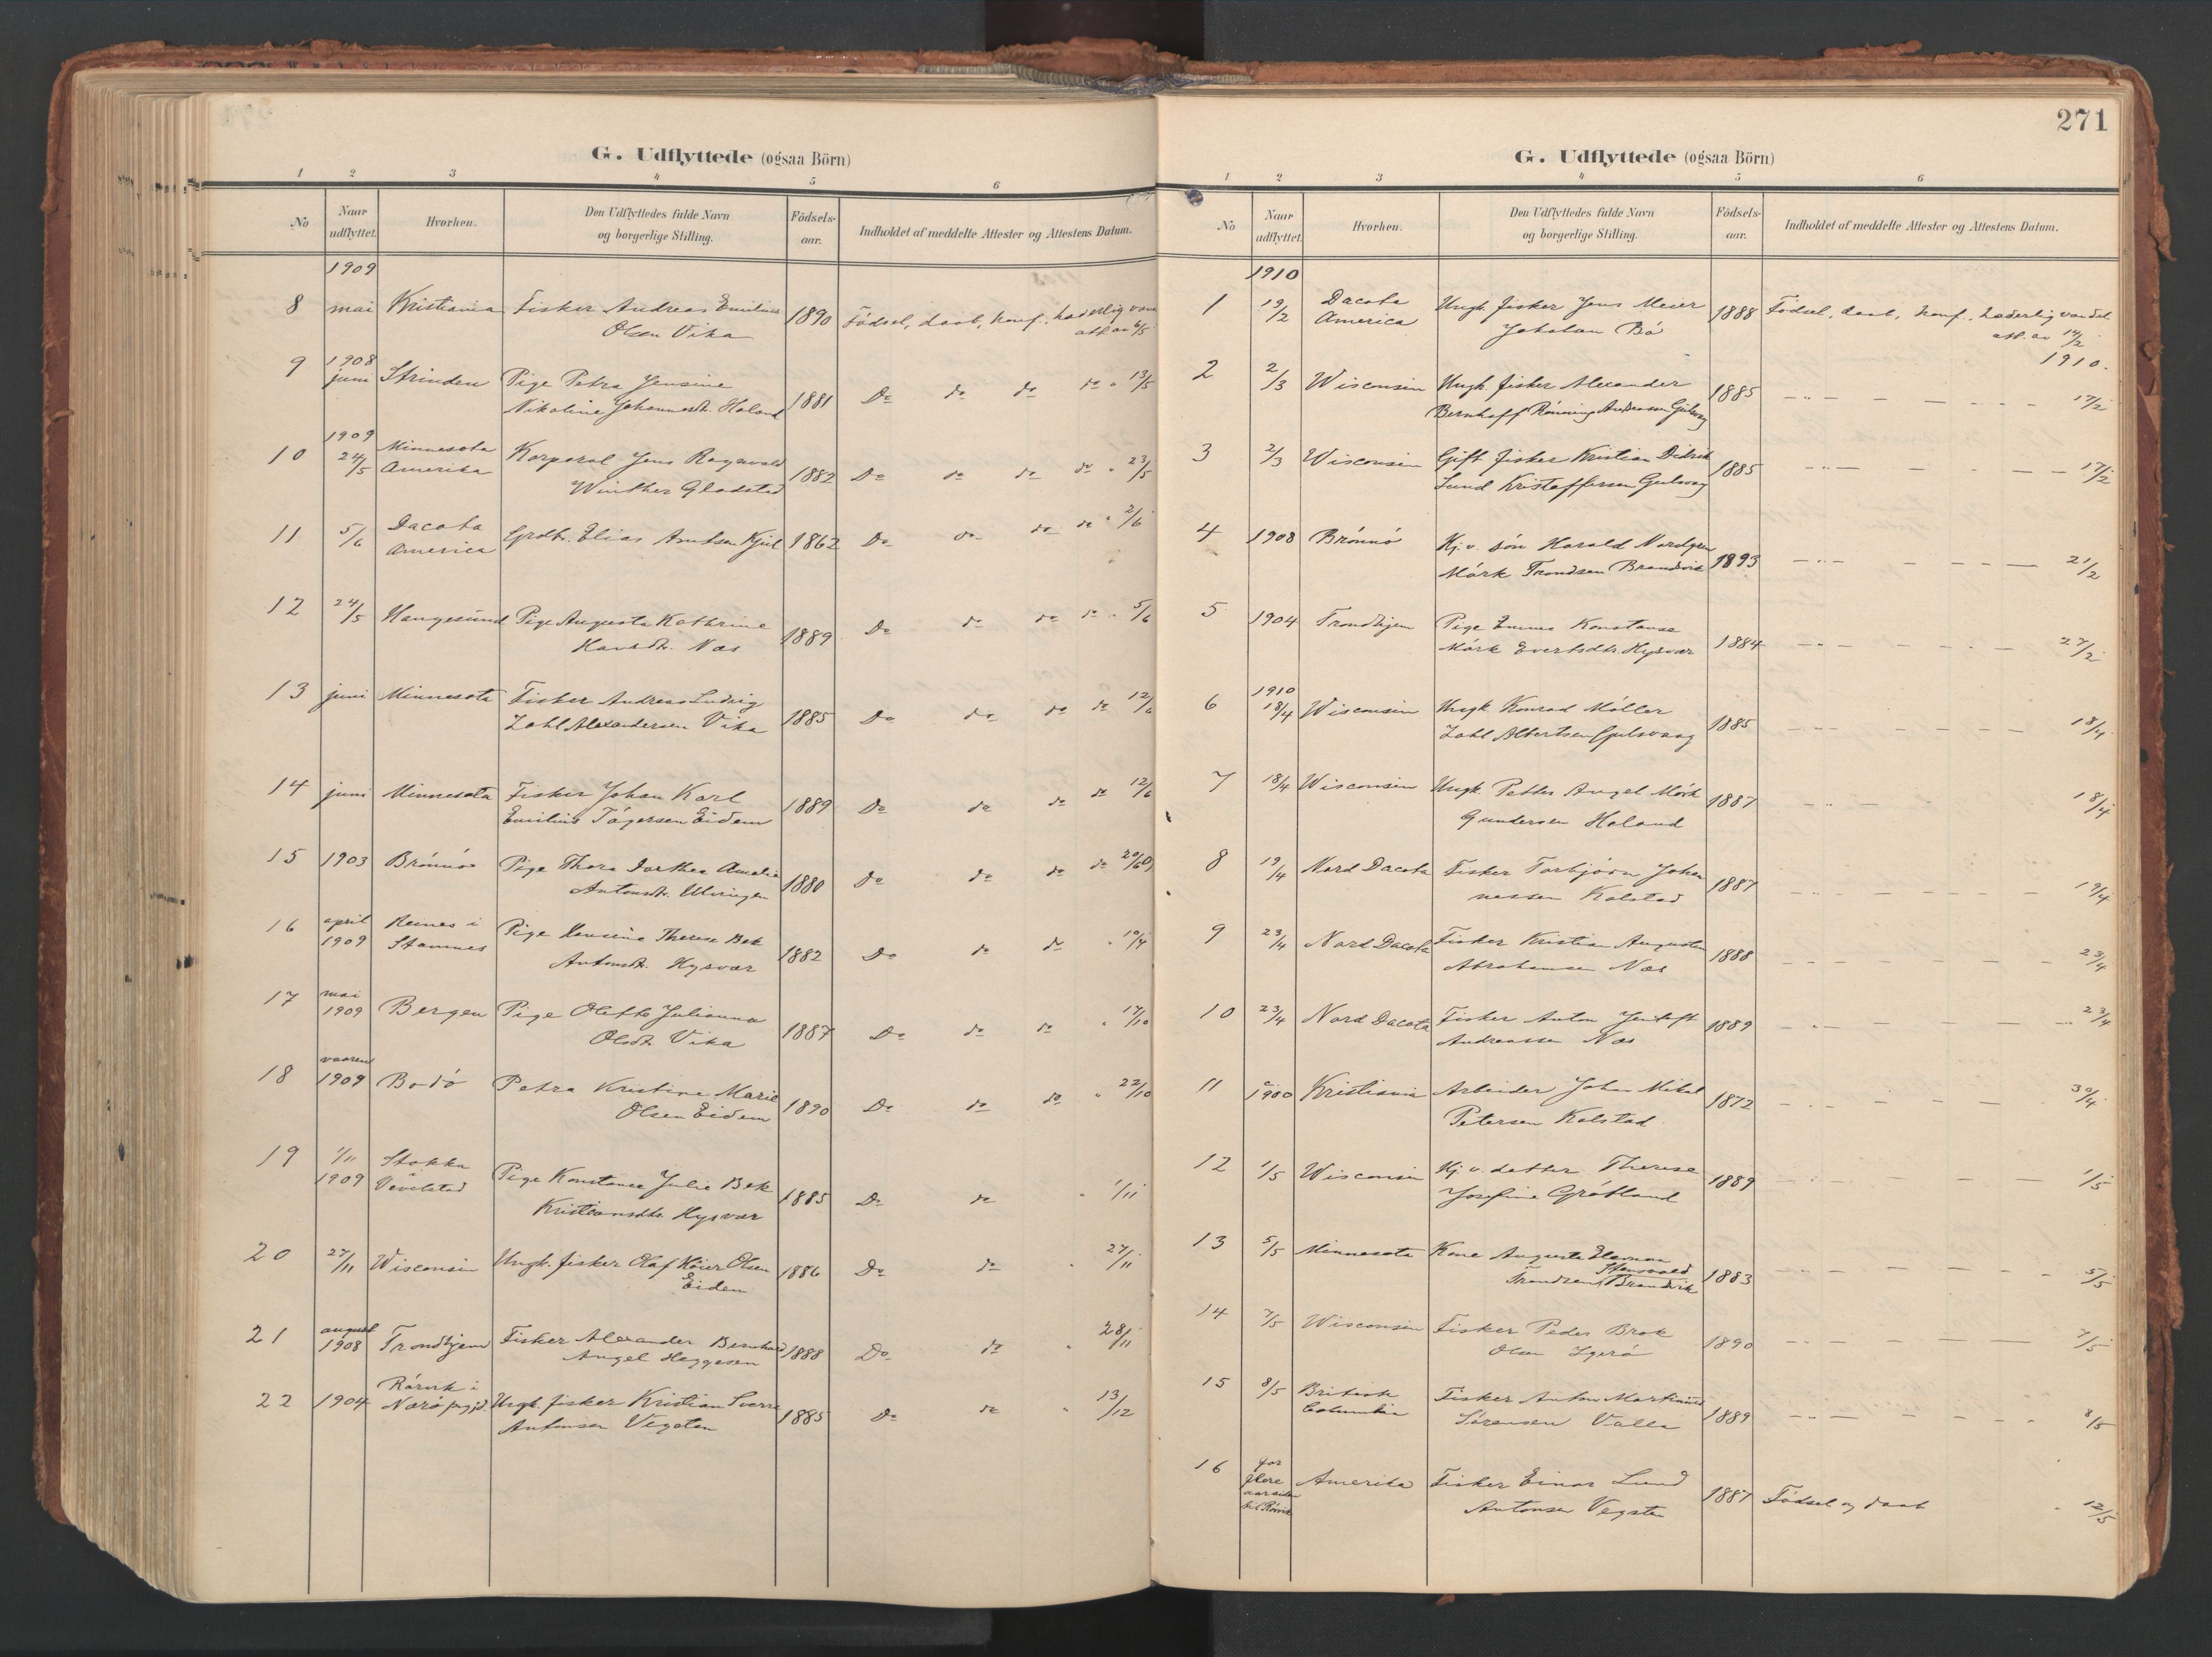 G. Udflyttede (ogsaa Börn)
1 2 3 4 5 6
No
Naar udflyttet.
Hvorhen.
Den Udflyttedes fulde Navn
og borgerlige Stilling.
Födsels-
aar.
Indholdet af meddelte Attester og Attestens Datum.
1909
8 mai Kristiania Fisker Andreas Emilius 1890 Födsel, daab, konf., hæderlig van
Olsen Vika att. av 6/5
9 1908
juni Strinden Pige Petra Jensine 1881 Do do do do " 13/5
Nikoline Johannesdt. Haland
10 1909
24/5 Minnesota Korporal Jens Ragnvald 1882 Do do do do " 23/5
Amerika Winther Gladstad
11 5/6 Dacota Grdbr. Elias Arntsen Kjul 1862 Do do do do " 2/6
America
12 24/5 Haugesund Pige Augusta Kathrine 1889 Do do do do " 5/6
Hansdt. Næs
13 juni Minnesota Fisker Andreas Ludvig 1885 Do do do do 12/6
Zahl Alexandersen Vika
14 juni Minnesota Fisker Johan Karl 1889 Do do do do 12/6
Emilius Tögersen Eidem
15 1903 Brönnö Pige Thora Dorthea Amalie 1880 Do do do do 20/6 09
Antonsdt.
16 april Reines i Pige Hansine Therese Bek 1882 Do do do " 10/7
1909 Stamnes Antonsdt. Hysvær
17 mai
1909 Bergen Pige Oletta Julianna 1887 Do do do " 17/10
Olsdt. Vika
18 vaaren
1909 Bodö Petra Kristine Marie 1890 Do do do " 22/10
Olsen Eidem
19 1/11 Stokka Pige Konstance Julie Bek 1885 Do do " 1/11
1909 i Vevelstad Kristiansdtr. Hysvær
20 27/11 Wisconsin Ungk. fisker Olaf Höier Olsen 1886 Do do " 27/11
Eidem
21 august
1908 Trondhjem Fisker Alexander Bernhard 1888 Do do " 28/11
Angel Heggesen
22 1904 Rörvik i
Nærö pgjd. Ungk. fisker Kristian Sverre 1885 Do do " 13/12
Antonsen Vegsten
271
G. Udflyttede (ogsaa Börn)
1 2 3 4 5 6
No
Naar udflyttet.
Hvorhen.
Den Udflyttedes fulde Navn
og borgerlige Stilling.
Födsels-
aar.
Indholdet af meddelte Attester og Attestens Datum.
1910
1 19/2 Dacota Ungk. fisker Jens Meier 1888 Födsel, daab, konf., hæderlig vandel
America Jakobsen Bö att. av 14/2
1910.
2 2/3 Wisconsin Ungk. fisker Alexander 1885 17/2
Bernhoff Rönning Andreassen Gulsvag
3 2/3 Wisconsin Gift fisker Kristian Didrik 1885 17/2
Lund Kristoffersen Gulsvag
4 1908 Brönnö Kj. v. sön Harald Nordgren 1893 21/2
Mörk Trondsen Brandvik
5 1904 Trondhjem Pige Emma Konstanse 1884 27/2
Mörk Evertsdtr. Hysvær
6 1910
18/4 Wisconsin Ungk. Konrad Möller 1885 18/4
Zahl Albertsen Gulsvaag
7 18/4 Wisconsin Ungk. Petter Angel Mörk 1887 18/4
Gundersen Haland
8 19/4 Nord Dacota Fisker Torbjörn Johan 1887 19/4
nessen Kolstad
9 23/4 Nord Dacota Fisker Kristian Augustin 1888 23/4
Abrahamsen Næs
10 23/4 Nord Dacota Fisker Anton Jentoft 1889 23/4
Andreassen Næs
11 1900 Kristiania Arbeider Johan Mikal 1872 30/4
Petersen Kolstad
12 1/5 Wisconsin Kj. v. datter Therese 1889 1/5
Josefine Gröttland
13 5/5 Minnesota Kone Augusta 1883 5/5
Trondsen Brandvik
14 7/5 Wisconsin Fisker Peder Brok 1890 7/5
Olsen Ygerö
15 8/5 British Fisker Anton Martinius 1889 8/5
Columbia Sörensen Valla
16 for
flere
aar siden
til Rörvik Amerika Fisker Einar Lund 1887 Födsel og daab " 12/5
Antonsen Vegsten